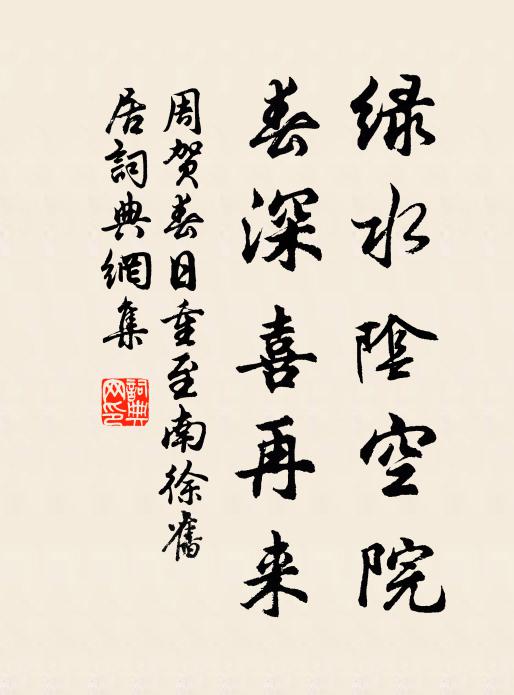 绿水阴空院
春深喜再来
周贺春日重至南徐旧
居词典網集
詞典
网印